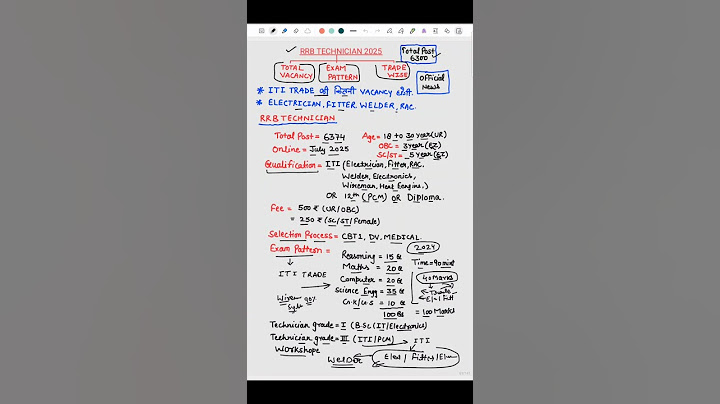 RRB TECHNICIAN 2025
Total Post
6300
TOTAL
VACANCY
EXAM
PATTERN
TRADE
WISE
Official
News
* ITI TRADE की कितनी VACANCY होगी.
* ELECTRICIAN, FITTER, WELDER, RAC.
RRB TECHNICIAN
Total Post = 6374
Age = 18 to 30 year (UR)
Online = July 2025
OBC = 3 year (छूट)
SC/ST = 5 year (छूट)
Qualification = ITI (Electrician, Fitter, RAC,
Welder, Electronics,
Wireman, Heat Engine,)
OR 12th (PCM) OR Diploma.
Fee = 500 ₹ (UR/OBC)
= 250 ₹ (SC/ST/Female)
Selection Process = CBT1, DV, MEDICAL.
Exam Pattern =
2024
Reasoning = 15 Q
Time = 90 mint
Maths = 20 Q
ITI TRADE
Computer = 20 Q
40 Marks
Science Engg = 35 Q
G.K/G.S = 10 Q
100 Qs
= 100 Marks
Technician grade = I (B.Sc (IT/Electronics)
Technician grade = III (ITI/PCM) → ITI
Workshope
Welder
Elect / Fitter /